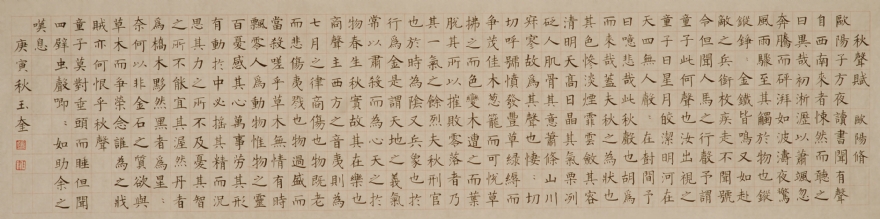 秋聲賦 歐陽修
歐陽子方夜讀書聞有聲
自西南來者悚然而聽之
曰異哉初淅瀝以蕭颯忽
奔騰而砰湃如波濤夜驚
風雨驟至其觸於物也鏦
鏦錚〻金鐵皆鳴又如赴
敵之兵銜枚疾走不聞號
令但聞人馬之行聲予謂
童子此何聲也汝出視之
童子曰星月皎潔明河在
天四無人聲〻在樹間予
曰噫悲哉此秋聲也胡為
來哉蓋夫秋之為狀也
其色慘淡煙霏雲斂其容
清明天高日晶其氣栗冽
砭人肌骨其意蕭條山川
寂寥故為其聲也淒〻切
切呼號憤發豐草綠縟而
爭茂佳木蔥蘢而可悅草
拂之而色變木遭之而葉
脫其所以摧敗零落者乃
其一氣之餘烈夫秋刑官
也於時為陰又兵象也於
行為金是謂天地之義氣
常以肅殺而為心天之於
物春生秋實故其在樂也
商聲主西方之音夷則為
七月之律商傷也物既老
而悲傷夷戮也物過盛而
當殺嗟乎草木無情有時
飄零人為動物惟物之靈
百憂感其心萬事勞其形
有動於中必搖其精而況
思其力之所不及憂其智
之所不能宜其渥然丹者
為槁木黟然黑者為星〻
奈何以非金石之質欲與
草木而爭榮念誰為之戕
賊亦何恨乎秋聲
童子莫對垂頭而睡但聞
四壁虫聲唧〻如助余之
嘆息
庚寅秋玉奎